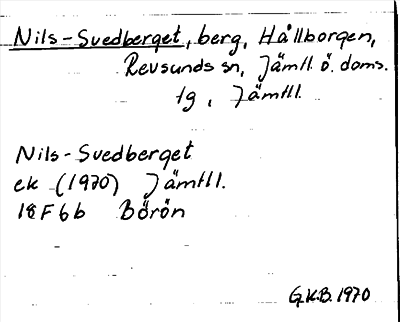 Nils-Svedberget, berg, Hållborgen,
Revsunds sn, Jämtl. ö. doms.
tg, Jämtl.
Nils-Svedberget
ek (1970) Jämtl.
18F6b Börön
G.K.B. 1970